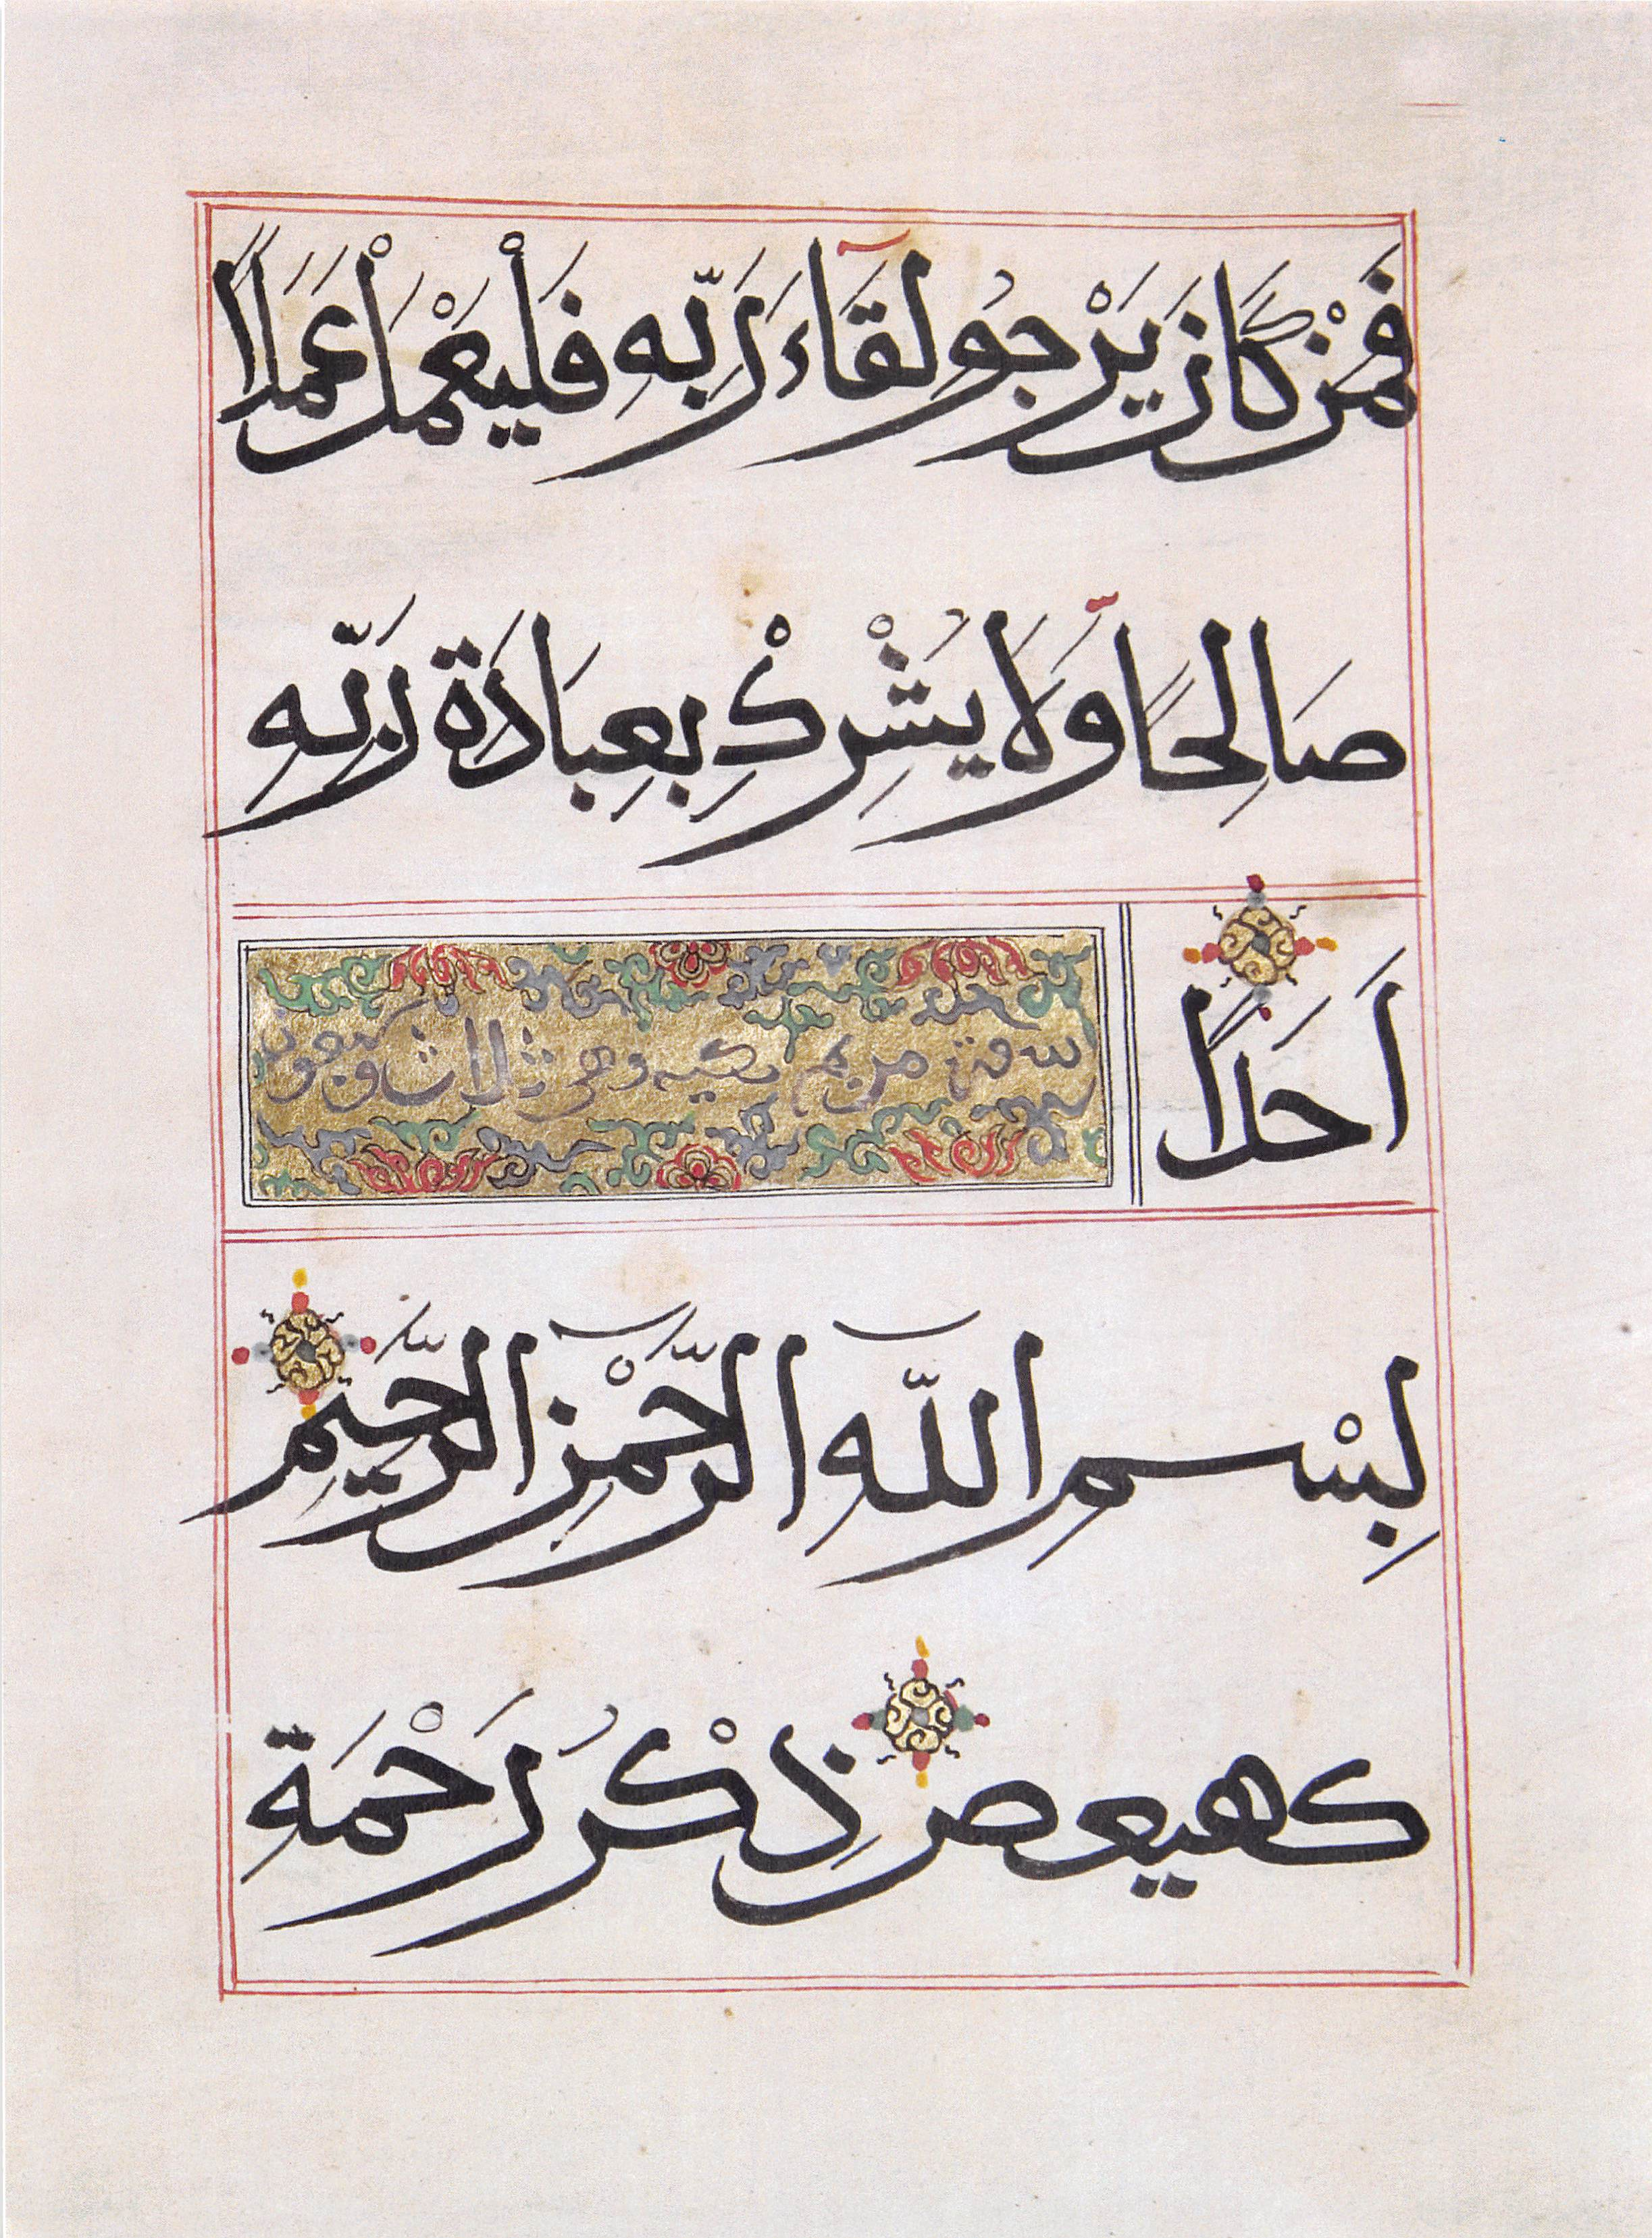 فَمَنْ كَانَ يَرْجُو لِقَآءَ رَبِّهِ فَلْيَعْمَلْ عَمَلًا
صَالِحًا وَّلَا يُشْرِكْ بِعِبَادَةِ رَبِّهِ
اَحَدًا
سورة مريم مكية وهي ثلاث وتسعون
بِسْمِ اللّٰهِ الرَّحْمٰنِ الرَّحِيْمِ
كهيعص ذِكْرُ رَحْمَةِ